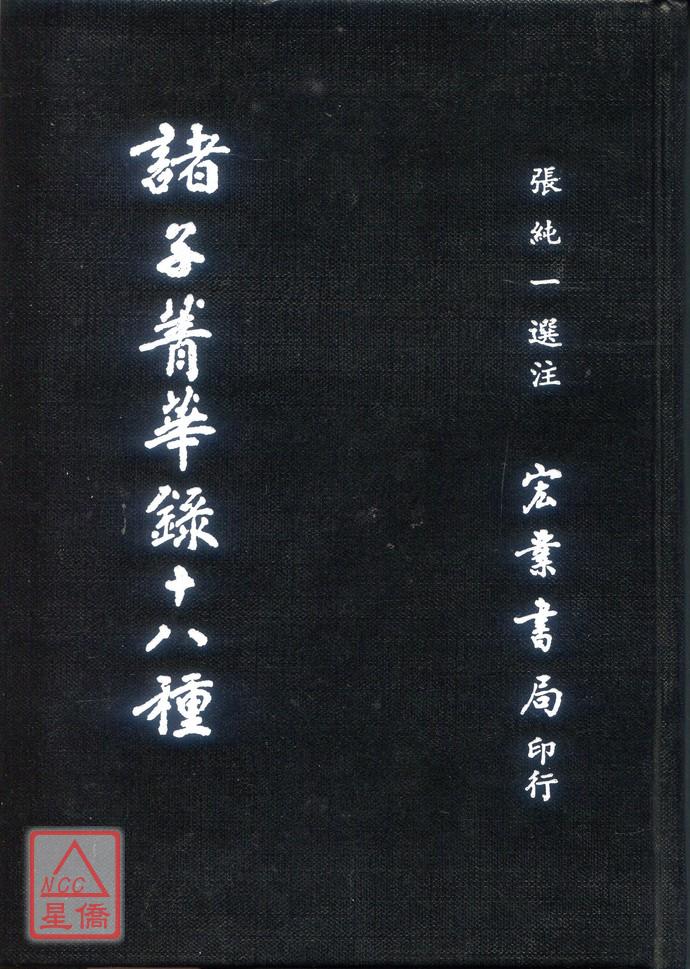 張純一選注 宏業書局印行
諸子菁華錄十八種
NCC
星僑